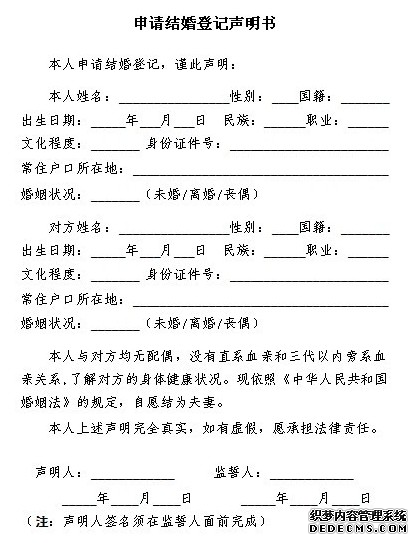 申请结婚登记声明书
本人申请结婚登记，谨此声明：
本人姓名：______________性别：___国籍：______
出生日期：_____年___月___日 民族：______职业：______
文化程度：______ 身份证件号：____________________
常住户口所在地：______________________________
婚姻状况：______（未婚/离婚/丧偶）
对方姓名：______________性别：___国籍：______
出生日期：_____年___月___日 民族：______职业：______
文化程度：______ 身份证件号：____________________
常住户口所在地：______________________________
婚姻状况：______（未婚/离婚/丧偶）
本人与对方均无配偶，没有直系血亲和三代以内旁系血
亲关系,了解对方的身体健康状况。现依照《中华人民共和国
婚姻法》的规定，自愿结为夫妻。
本人上述声明完全真实，如有虚假，愿承担法律责任。
声明人：__________ 监誓人：__________
_____年____月____日 _____年____月____日
（注：声明人签名须在监誓人面前完成）
织梦内容管理系统
DEDECMS.COM